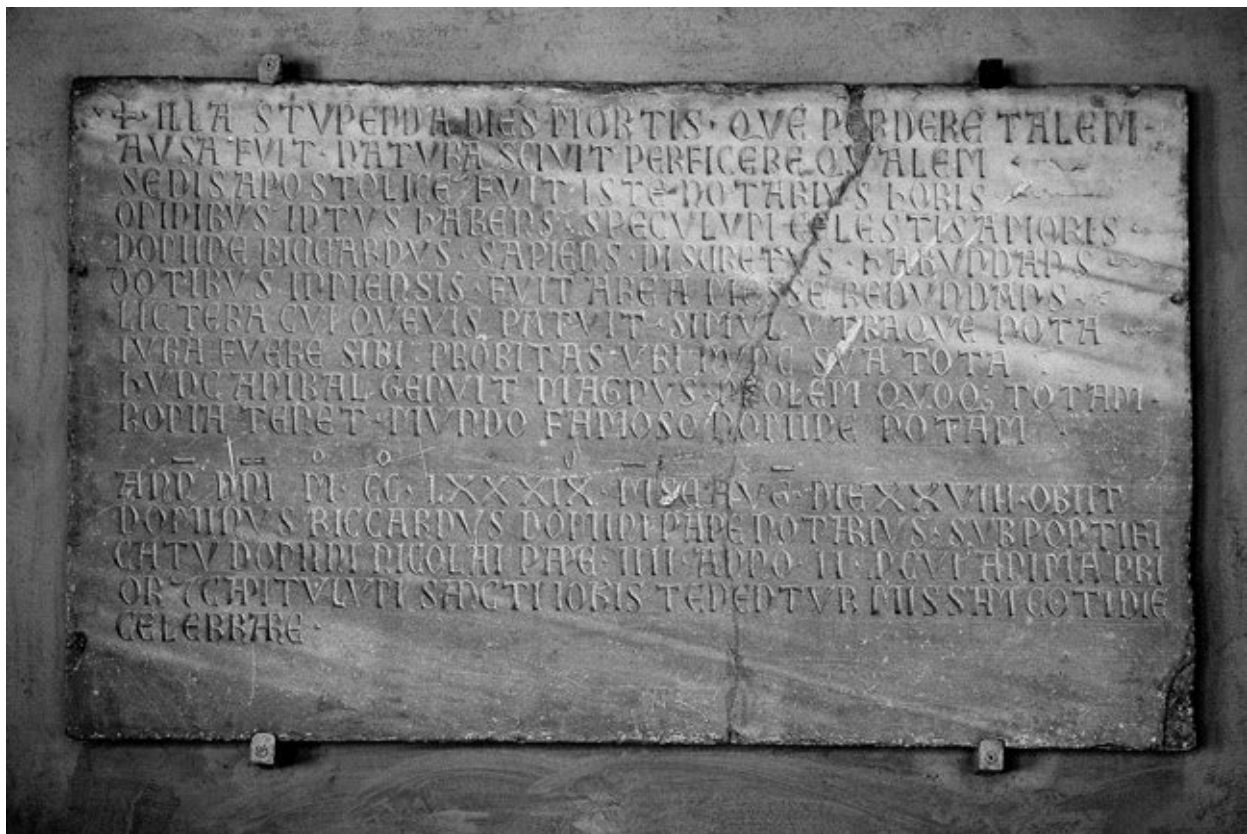 + ILLA STUPENDA DIES MORTIS · QUE PERDERE TALEM ·
AUSA FUIT · NATURA SCIVIT PERFICERE QUALEM
SEDIS APOSTOLICE FUIT ISTE NOTARIUS HORIS
OMNIBUS INTUS HABENS · SPECULUM CELESTIS AMORIS
NOMINE RICCARDUS · SAPIENS DISCRETUS · HABUNDANS
DOTIBUS INMENSIS · FUIT AREA MESSE REDUNDANS
LICTERA CUI QUEVIS PATUIT · SIMUL UTRAQUE NOTA
IURA FUERE SIBI PROBITAS · UBI NUNC SUA TOTA
HUNC ANIBAL GENUIT MAGNUS · PROLEM QUOQ; TOTAM ·
ROMA TENET · MUNDO FAMOSO NOMINE NOTAM
ANN DNI M CC LXXXIX · MSE AUG DIE XXVIII · OBIIT
DOMINUS RICCARDUS DOMINI PAPE NOTARIUS · SUB PONTIFI
CATU DOMINI NICOLAI PAPE · IIII ANNO · II · P CUI ANIMA PRI
OR 7 CAPITULUM SANCTI IOHIS TENENTUR MISSAM COTIDIE
CELEBRARE ·